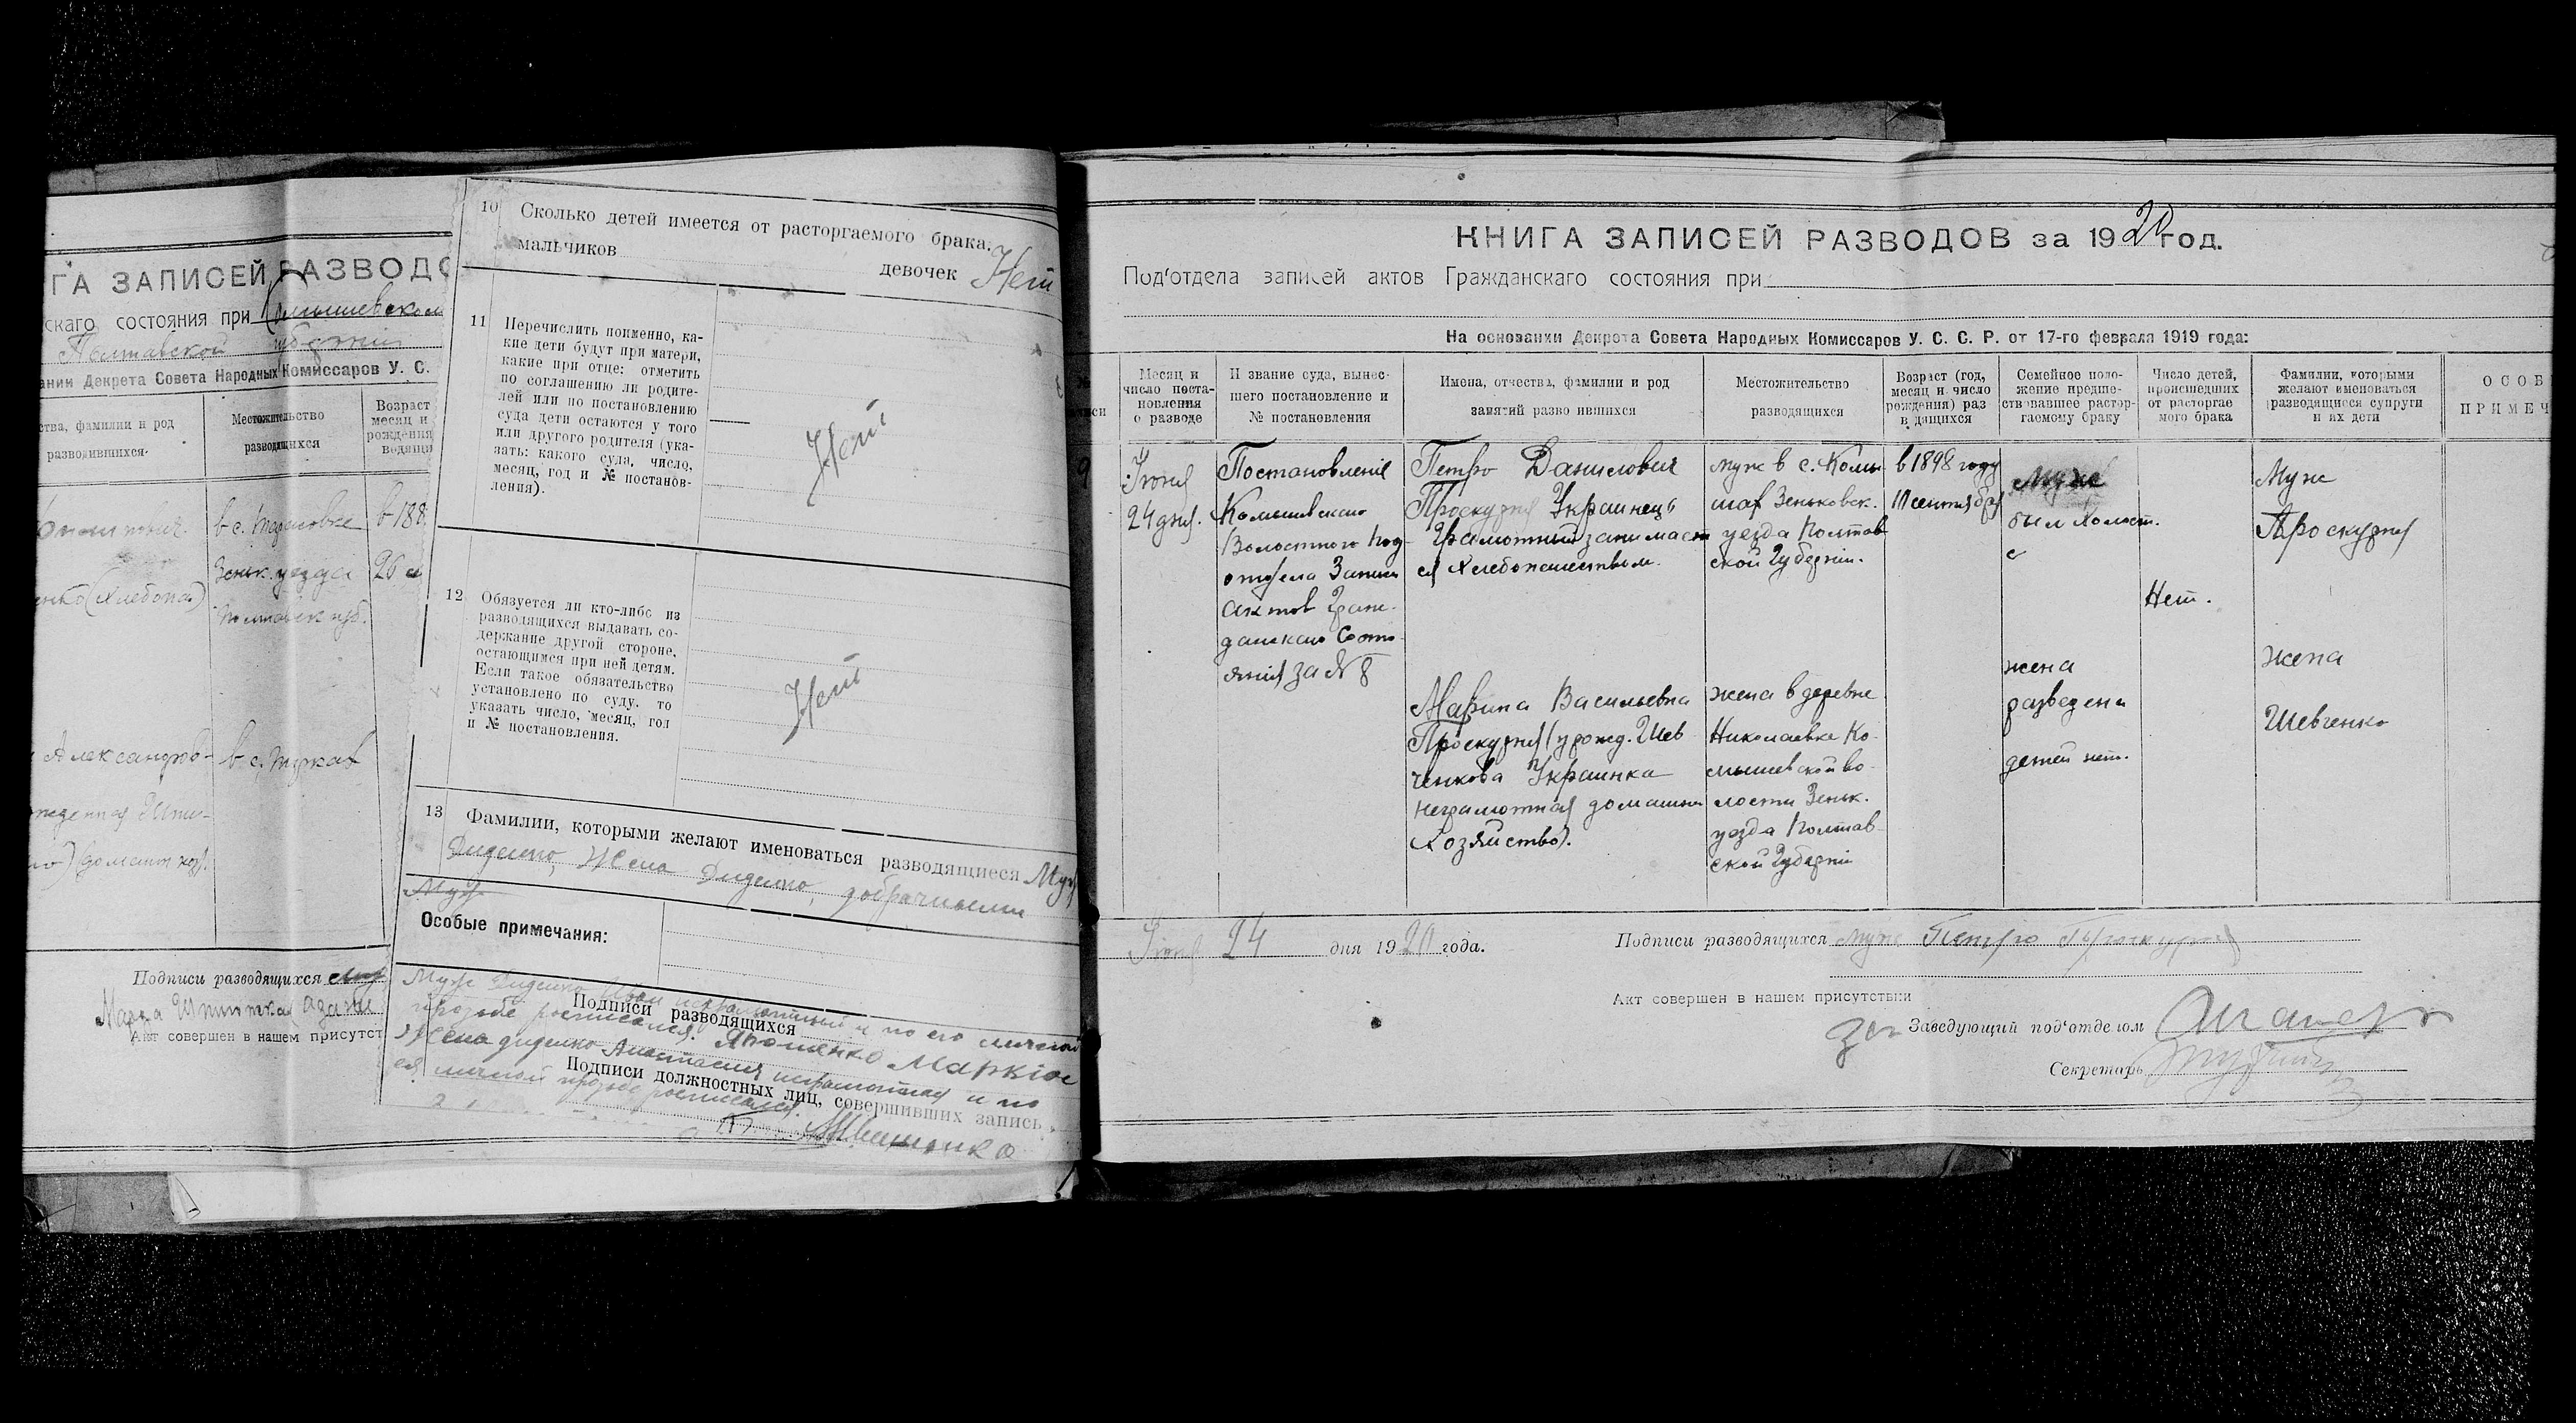 ГА ЗАПИСЕЙ РАЗВОДО
скаго состояния при Комышевском
Полтавской губернии
ании Декрета Совета Народных Комиссаров У. С.
ства, фамилии и род
разводившихся.
Местожительство
разводящихся
Возраст
месяц и
рождения
водящи
в с. 
в 188
Зеньк. уезда
26
енко (Хлебопа)
Полтавск губ.
Александро-
в с.
(домашн хоз).
Подписи разводящихся
Акт совершен в нашем присутст
10 Сколько детей имеется от расторгаемого брака.
мальчиков
девочек Нет
11 Перечислить поименно, ка-
кие дети будут при матери,
какие при отце: отметить
по соглашению ли родите-
лей или по постановлению
суда дети остаются у того
или другого родителя (ука-
зать: какого суда, число,
месяц, год и № постанов-
ления).
Нет
12 Обязуется ли кто-либо из
разводящихся выдавать со-
держание другой стороне,
остающимся при ней детям.
Если такое обязательство
установлено по суду, то
указать число, месяц, год
и № постановления.
Нет
13 Фамилии, которыми желают именоваться разводящиеся Муж
Диденко, Жена Диденко,
Муж
Особые примечания:
Муж Диденко неграмотный и по его личной
Подписи разводящихся
прозьбе росписался. Яношенко Маркіон
Жена Диденко Анастасия неграмотная и по
Подписи должностных лиц, совершивших запись
ея личной прозьбе росписался
КНИГА ЗАПИСЕЙ РАЗВОДОВ за 1920 год.
Под'отдела записей актов Гражданскаго состояния при
На основании Декрета Совета Народных Комиссаров У. С. С. Р. от 17-го февраля 1919 года:
Месяц и
число поста-
новления
о разводе
Н звание суда, вынес-
шего постановление и
№ постановления
Имена, отчества, фамилии и род
занятий разво ившихся
Местожительство
разводящихся
Возраст (год,
месяц и число
рождения) раз
в дящихся
Семейное поло-
жение предше-
ствовавшее растор-
гаемому браку
Число детей,
происшедших
от расторгае
мого брака
Фамилии, которыми
желают именоваться
разводящиеся супруги
и их дети
ОСОБ
ПРИМЕЧ
9
Іюня
24 дня.
Постановленія
Комышевскаго
Волостного Под-
отдела Записи
актов Граж-
данскаго Состо-
янія за № 8
Петро Данилович
Проскурня Украинець
Грамотный занимает
ся Хлебопашеством.
муж в с. Комы
шах Зеньковск.
уезда Полтав
ской Губерніи.
в 1898 году
10 сентября
Муж
был холост.
Нет.
Муж
Проскурня
Марина Васильевна
Проскурня (урожд. Шев
ченкова Украинка
неграмотная домашни
Хозяйство).
жена в деревне
Николаевке Ко-
мышевской во-
лости Зеньк.
уезда Полтав
ской Губерніи
жена
разведена
детей нет.
жена
Шевченко
Іюня 24 дня 1920 года.
Подписи разводящихся муж Петро Проскурня
Акт совершен в нашем присутствии
За Заведующий под'отделом
Секретарь